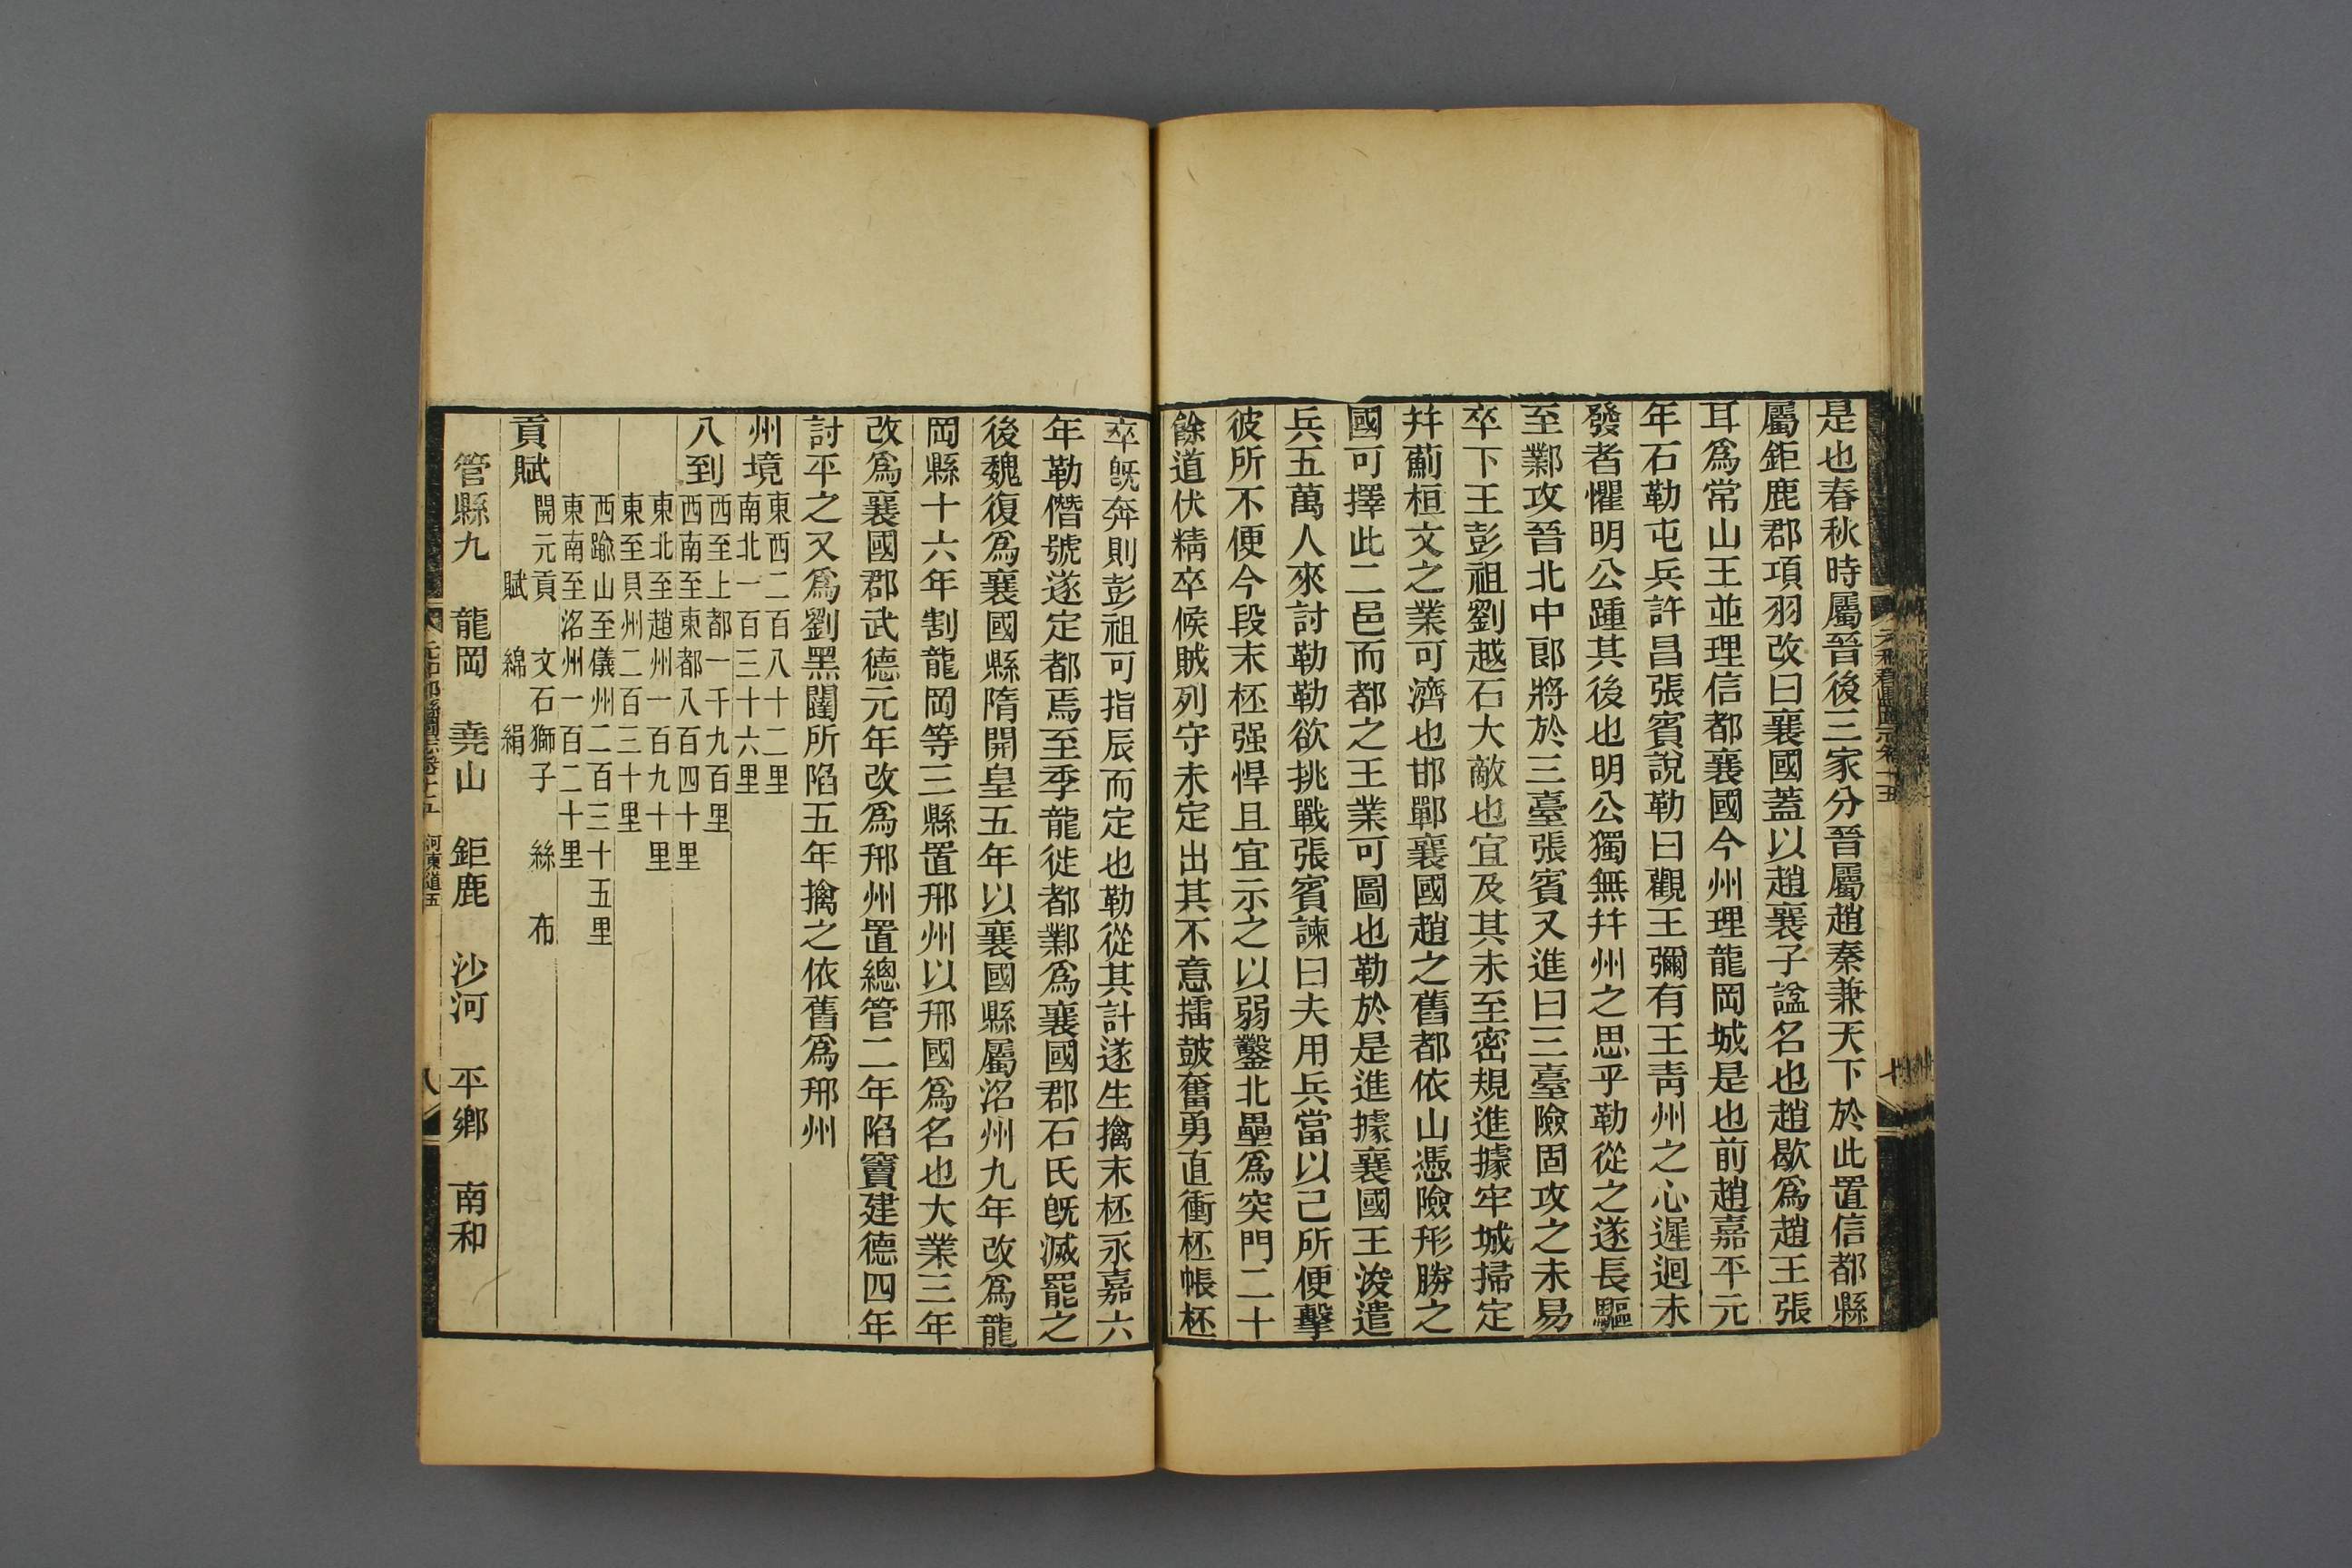 是也春秋時屬晉後三家分晉屬趙秦兼天下於此置信都縣
屬鉅鹿郡項羽改曰襄國蓋以趙襄子諡名也趙歇爲趙王張
耳爲常山王並理信都襄國今州理龍岡城是也前趙嘉平元
年石勒屯兵許昌張賓說勒曰觀王彌有王靑州之心遲迴未
發者懼明公踵其後也明公獨無幷州之思乎勒從之遂長驅
至鄴攻晉北中郎將於三臺張賓又進曰三臺險固攻之未易
卒下王彭祖劉越石大敵也宜及其未至密規進據牢城掃定
幷薊桓文之業可濟也邯鄲襄國趙之舊都依山憑險形勝之
國可擇此二邑而都之王業可圖也勒於是進據襄國王浚遣
兵五萬人來討勒勒欲挑戰張賓諫曰夫用兵當以己所便擊
彼所不便今段末柸强悍且宜示之以弱鑿北壘爲突門二十
餘道伏精卒候賊列守未定出其不意擂鼓奮勇直衝柸帳柸
卒旣奔則彭祖可指辰而定也勒從其計遂生擒末柸永嘉六
年勒僭號遂定都焉至季龍徙都鄴爲襄國郡石氏旣滅罷之
後魏復爲襄國縣隋開皇五年以襄國縣屬洺州九年改爲龍
岡縣十六年割龍岡等三縣置邢州以邢國爲名也大業三年
改爲襄國郡武德元年改爲邢州置總管二年陷竇建德四年
討平之又爲劉黑闥所陷五年擒之依舊爲邢州
州境
東西二百八十二里
南北一百三十六里
八到
西至上都一千九百里
西南至東都八百四十里
東北至趙州一百九十里
東至貝州二百三十里
西踰山至儀州二百三十五里
東南至洺州一百二十里
貢賦
開元貢 文石獅子 絲 布
賦 綿 絹
管縣九 龍岡 堯山 鉅鹿 沙河 平鄉 南和
元和郡縣圖志卷十五 河東道五 八
元和郡縣圖志卷十五